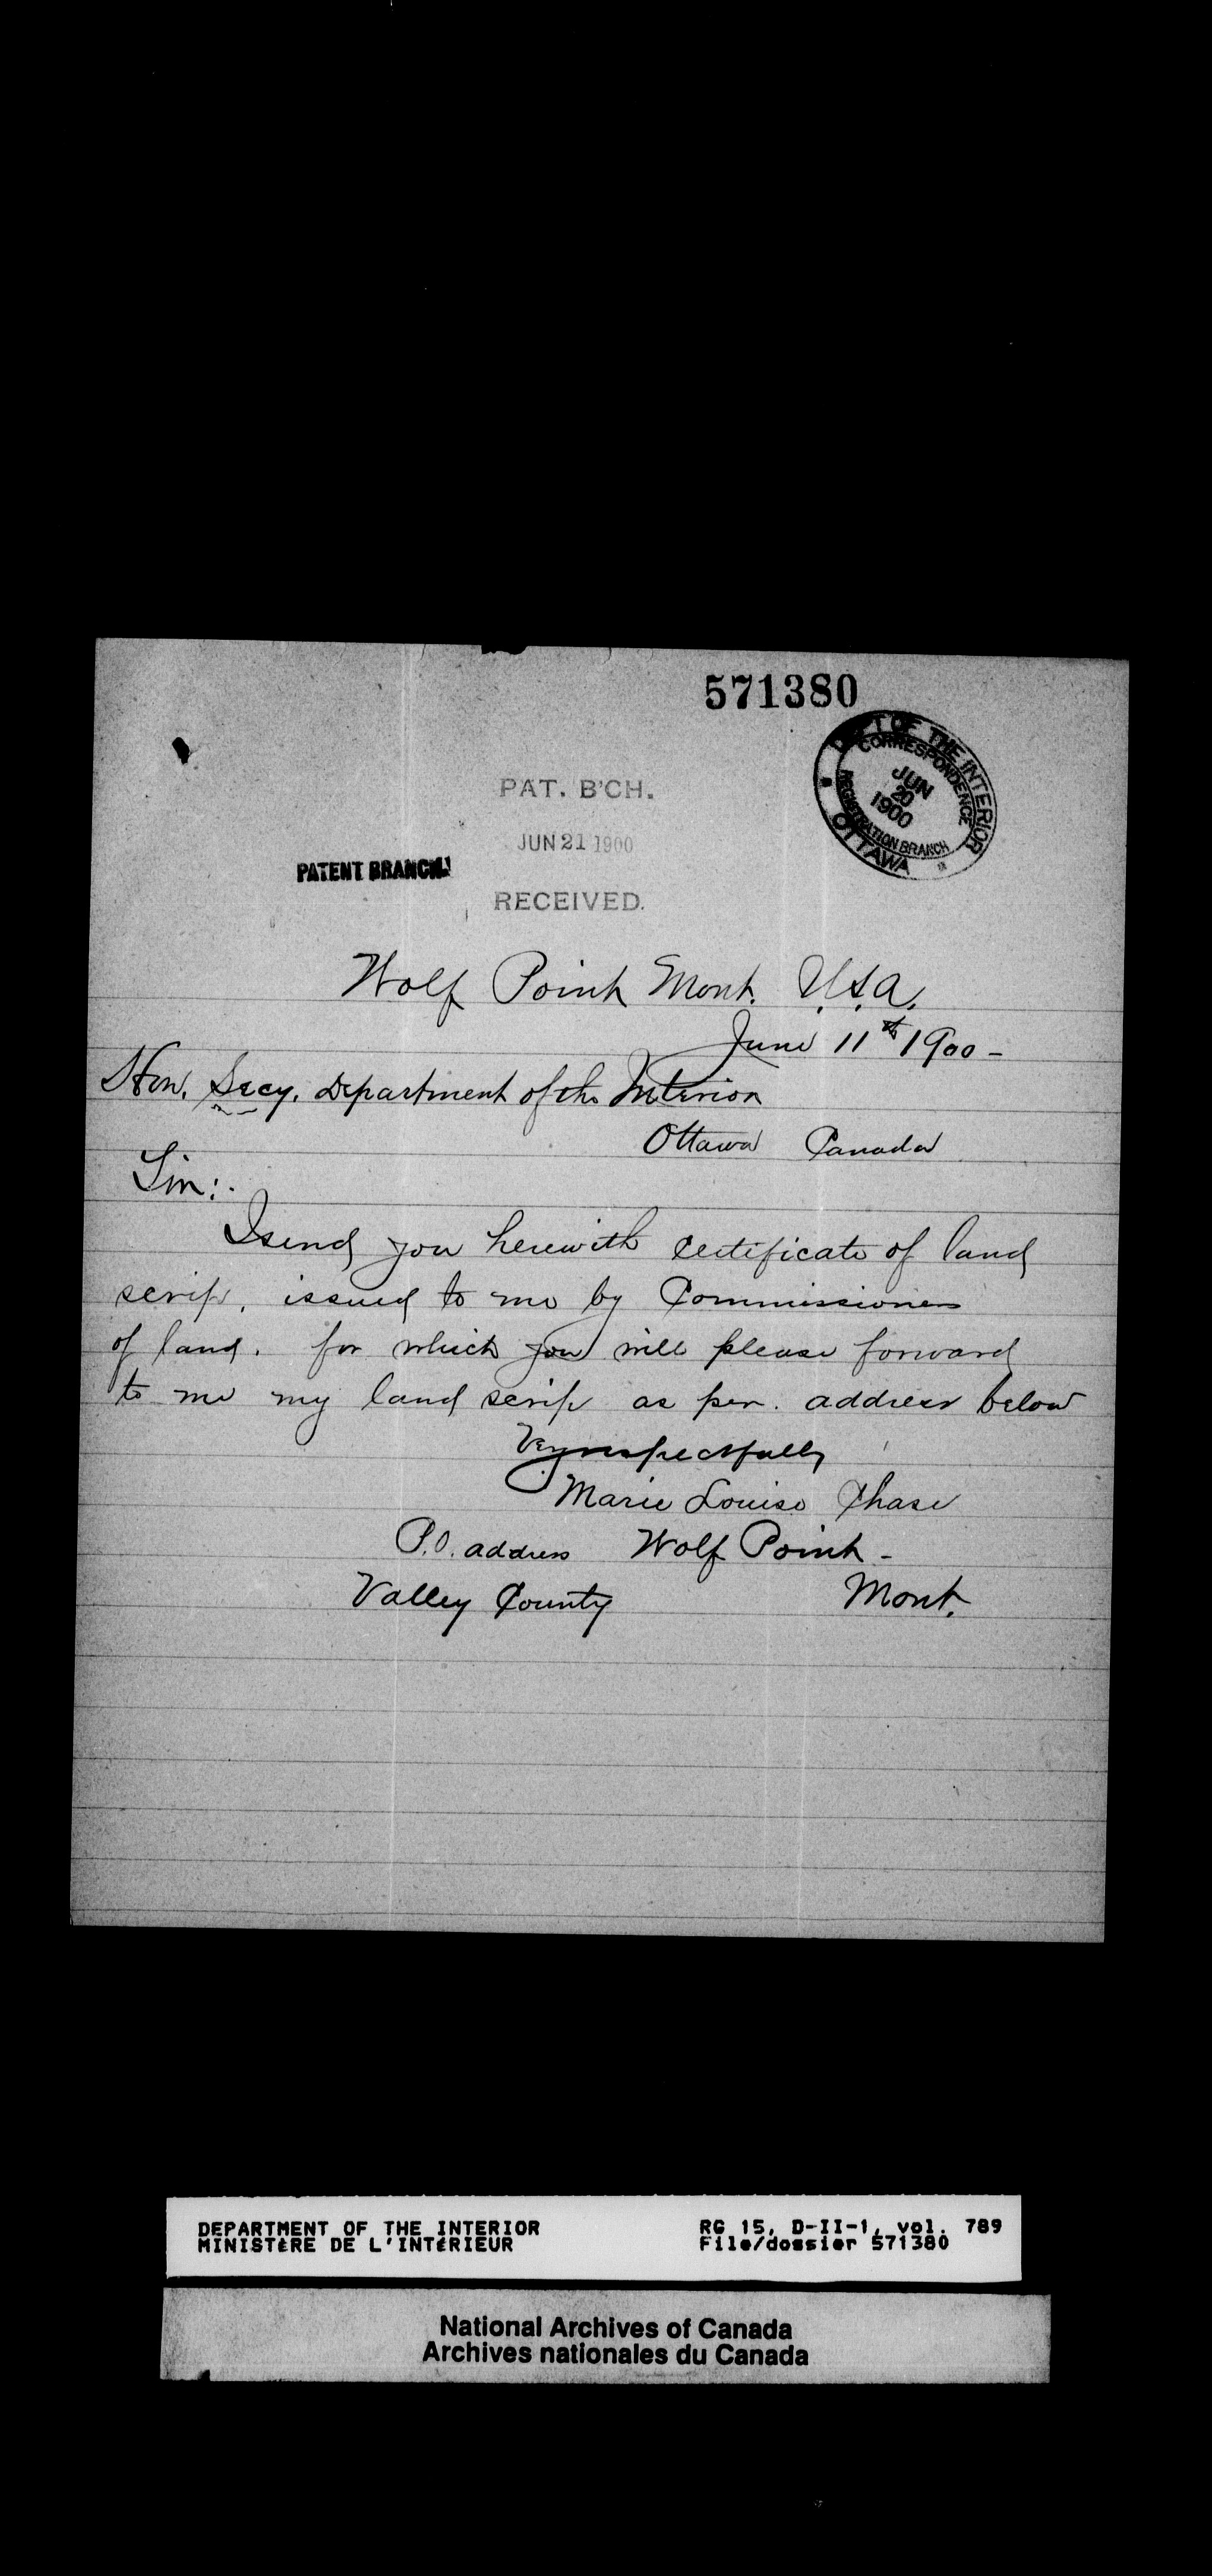 571380
DEPT OF THE INTERIOR
CORRESPONDENCE
JUN
20
1900
REGISTRATION BRANCH
OTTAWA
PAT. B'CH.
JUN 21 1900
PATENT BRANCH.
RECEIVED.
Wolf Point Mont. U.S.A.
June 11th 1900 -
Hon. Secy. Department of the Interior
Ottawa Canada
Sir:.
I send you herewith Certificate of land
scrip, issued to me by Commissioners
of land. for which you will please forward
to me my land scrip as per. address below
Very respectfully
Marie Louise Chase
P.O. address Wolf Point -
Valley County Mont.
DEPARTMENT OF THE INTERIOR RG 15, D-II-1, vol. 789
MINISTÈRE DE L'INTÉRIEUR File/dossier 571380
National Archives of Canada
Archives nationales du Canada